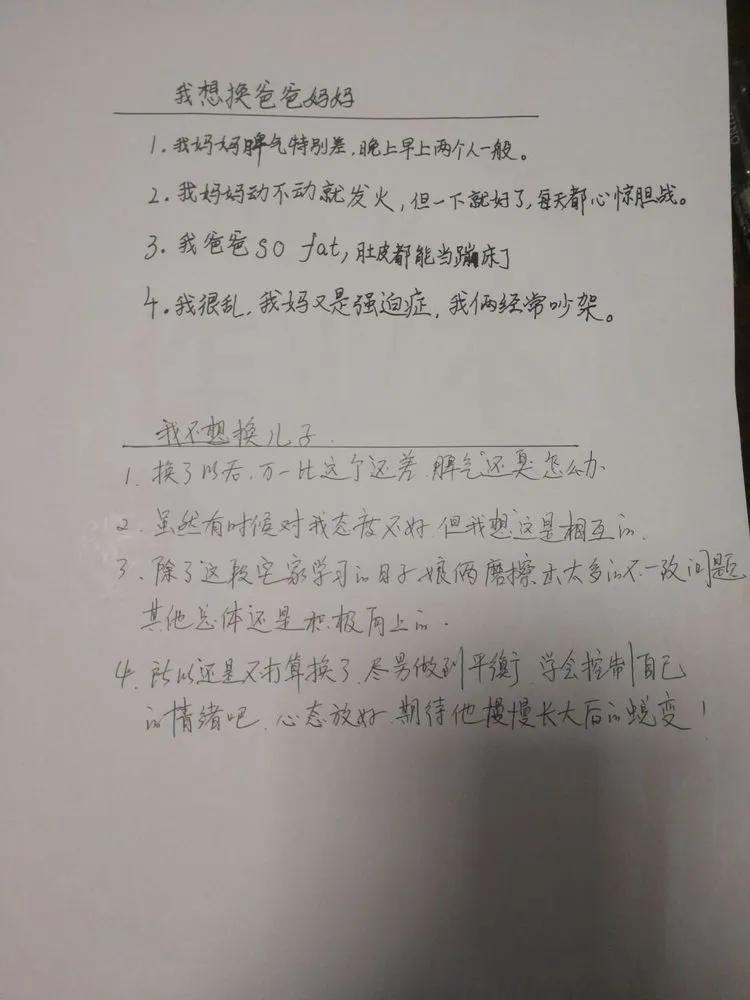 我想换爸爸妈妈
1. 我妈妈脾气特别差,晚上早上两个人一般。
2. 我妈妈动不动就发火,但一下就好了,每天都心惊胆战。
3. 我爸爸so fat,肚皮都能当蹦床了
4. 我很乱,我妈又是强迫症,我俩经常吵架。
我不想换儿子.
1. 换了以后,万一比这个还差,脾气还臭怎么办
2. 虽然有时候对我态度不好,但我想这是相互的.
3. 除了这段宅家学习的日子娘俩磨擦出太多的不一致问题
其他总体还是积极向上的.
4. 所以还是不打算换了,尽量做到平衡,学会控制自己
的情绪吧,心态放好,期待他慢慢长大后的蜕变!